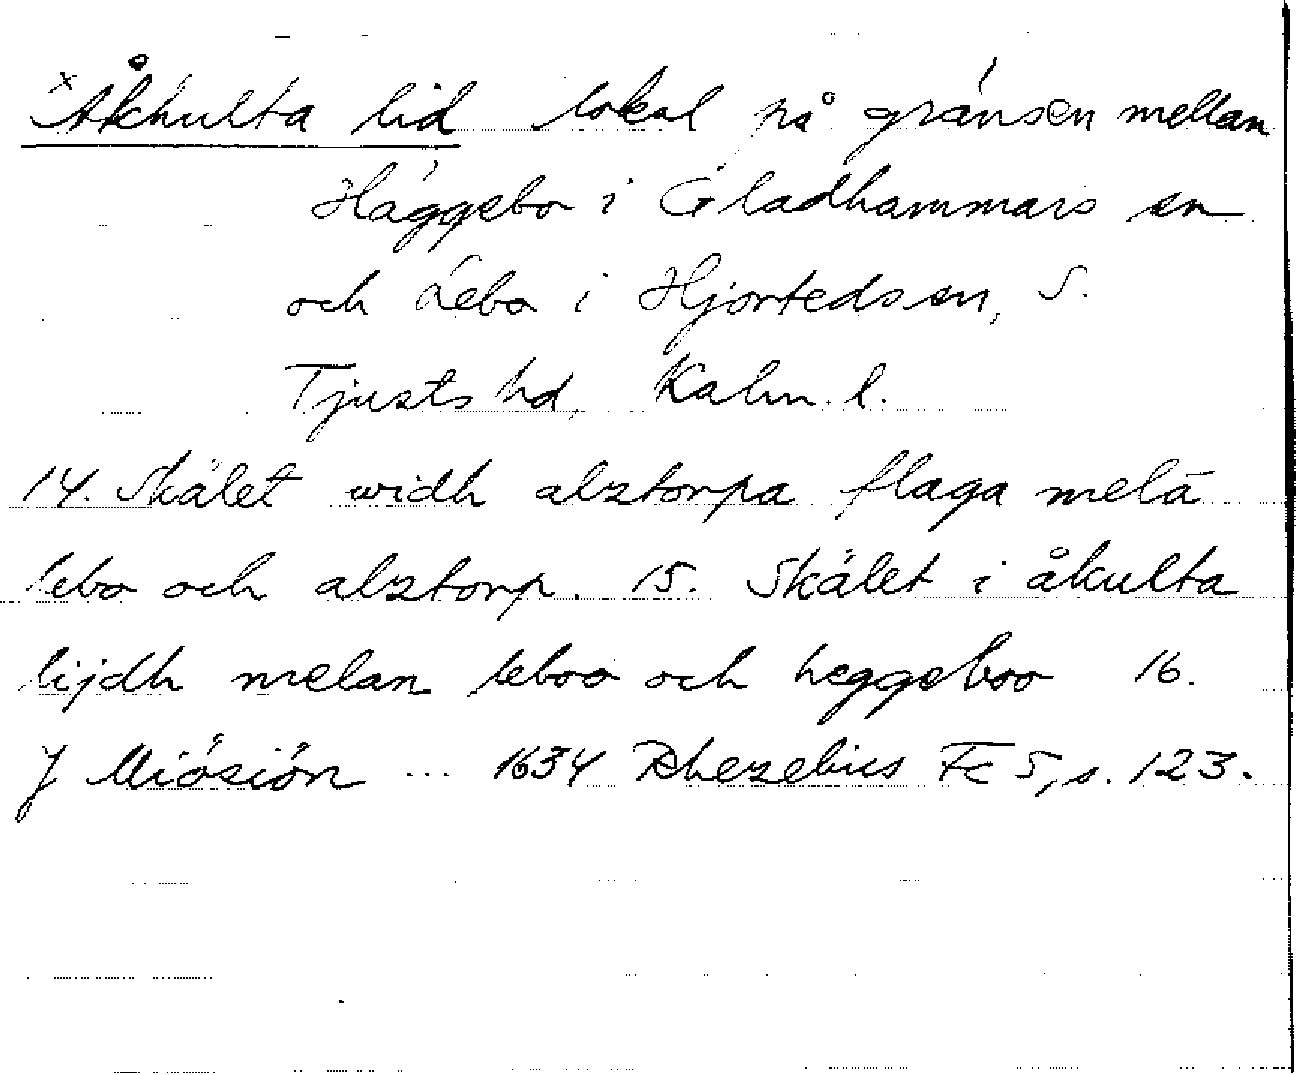 ×Åkhulta lid lokal på gränsen mellan
Häggebo i Gladhammars sn
och Lebo i Hjorteds sn, S.
Tjusts hd, Kalm. l.
14. Skälet widh alztorpa flaga melā
lebo och alztorp. 15. Skälet i åkulta
lijdh melan leboo och heggeboo 16.
J Miösiön ... 1634 Rhezelius Fc 5, s. 123.